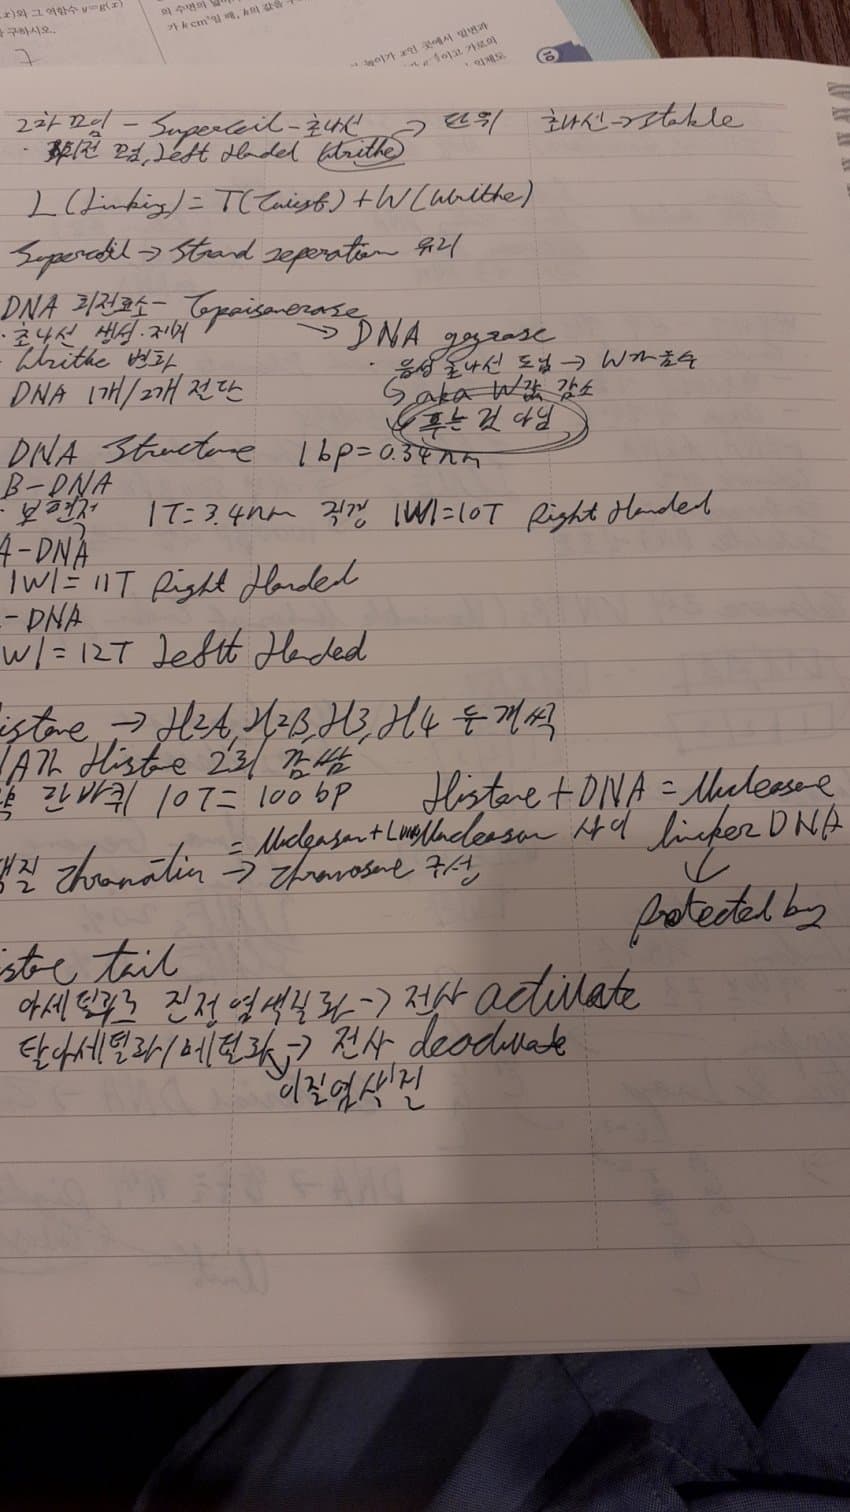 (x)와 그 역함수 y=g(x)
구하시오.
의 수면의 넓이
가 k cm²일 때, k의 값을
높이가 x인 곳에서 밑면과
이고 가로의
입체도
2차 꼬임 - Supercoil - 초나선 → 단위 초나선→stable
· 회전 꼬임, Left Handed Writhe
L (Linking) = T(Twist) + W(Writhe)
Supercoil → Strand seperation 유리
DNA 회전효소 - Topoisomerase
· 초나선 생성·제거 → DNA gyrase
- Writhe 변화 · 음성 초나선 도입 → W가 음수
DNA 1개/2개 절단 ↳ aka W값 감소
↳ 푸는 것 아님
DNA Structure 1bp=0.34nm
B-DNA
· 보편적 1T=3.4nm 직경 |W|=10T Right Handed
A-DNA
|W|= 11T Right Handed
-DNA
W|=12T Left Handed
istone → H2A, H2B, H3, H4 두개씩
A가 Histone 2회 감쌈
한바퀴 10T= 100bp Histone + DNA = Nucleosome
= Nucleosom+Linker Nucleosom 사이 linker DNA
색질 Chromatin → Chromosome 구성 ↓
Protected by
istone tail
아세틸화 진정염색질화 → 전사 activate
탈아세틸화/메틸화 → 전사 deactivate
↳ 이질염색질